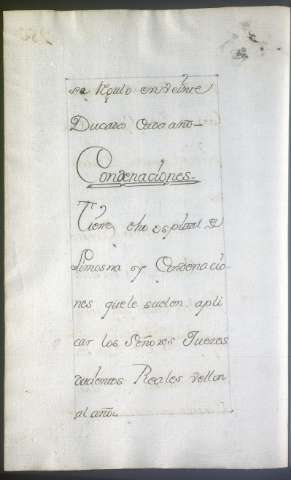 se Repulo en veinte
Ducados Cada año-
Condenaciones.
Tiene, dho espital de
Limosna y Condenacio-
nes que le suelen apli
car los Señores Juezes
ducientos Reales vellon
al año.